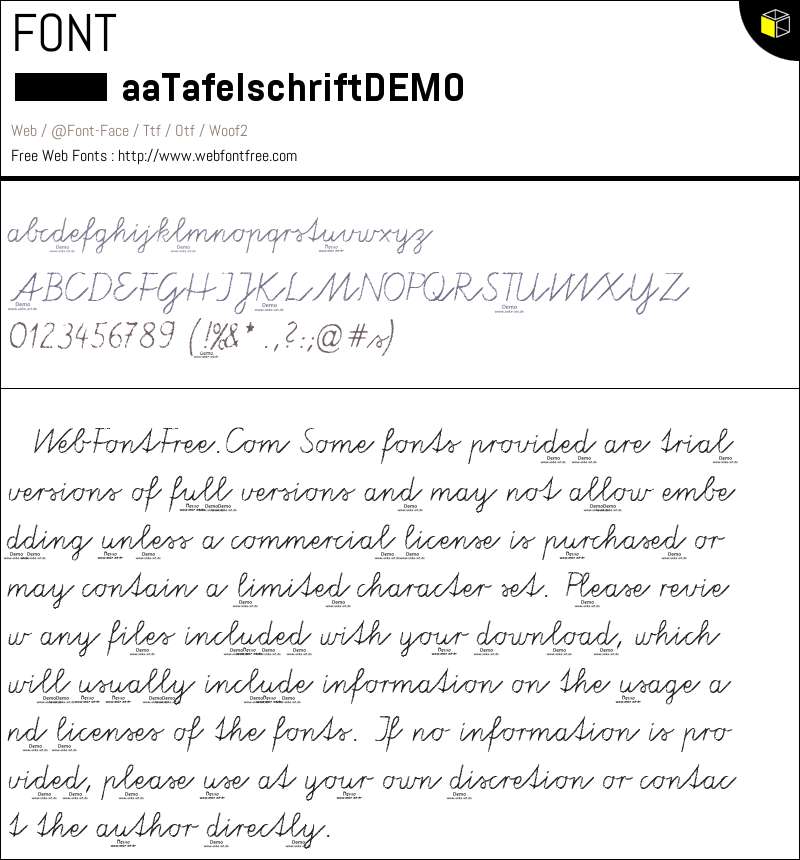 FONT
aaTafelschriftDEMO
Web / @Font-Face / Ttf / Otf / Woof2
Free Web Fonts : http://www.webfontfree.com
abcdefghijklmnopqrstuvwxyz
ABCDEFGHIJKLMNOPQRSTUVWXYZ
0123456789 (!%&* .,?:;@#s)
WebFontFree.Com Some fonts provided are trial
versions of full versions and may not allow embe
dding unless a commercial license is purchased or
may contain a limited character set. Please revie
w any files included with your download, which
will usually include information on the usage a
nd licenses of the fonts. If no information is pro
vided, please use at your own discretion or contac
t the author directly.